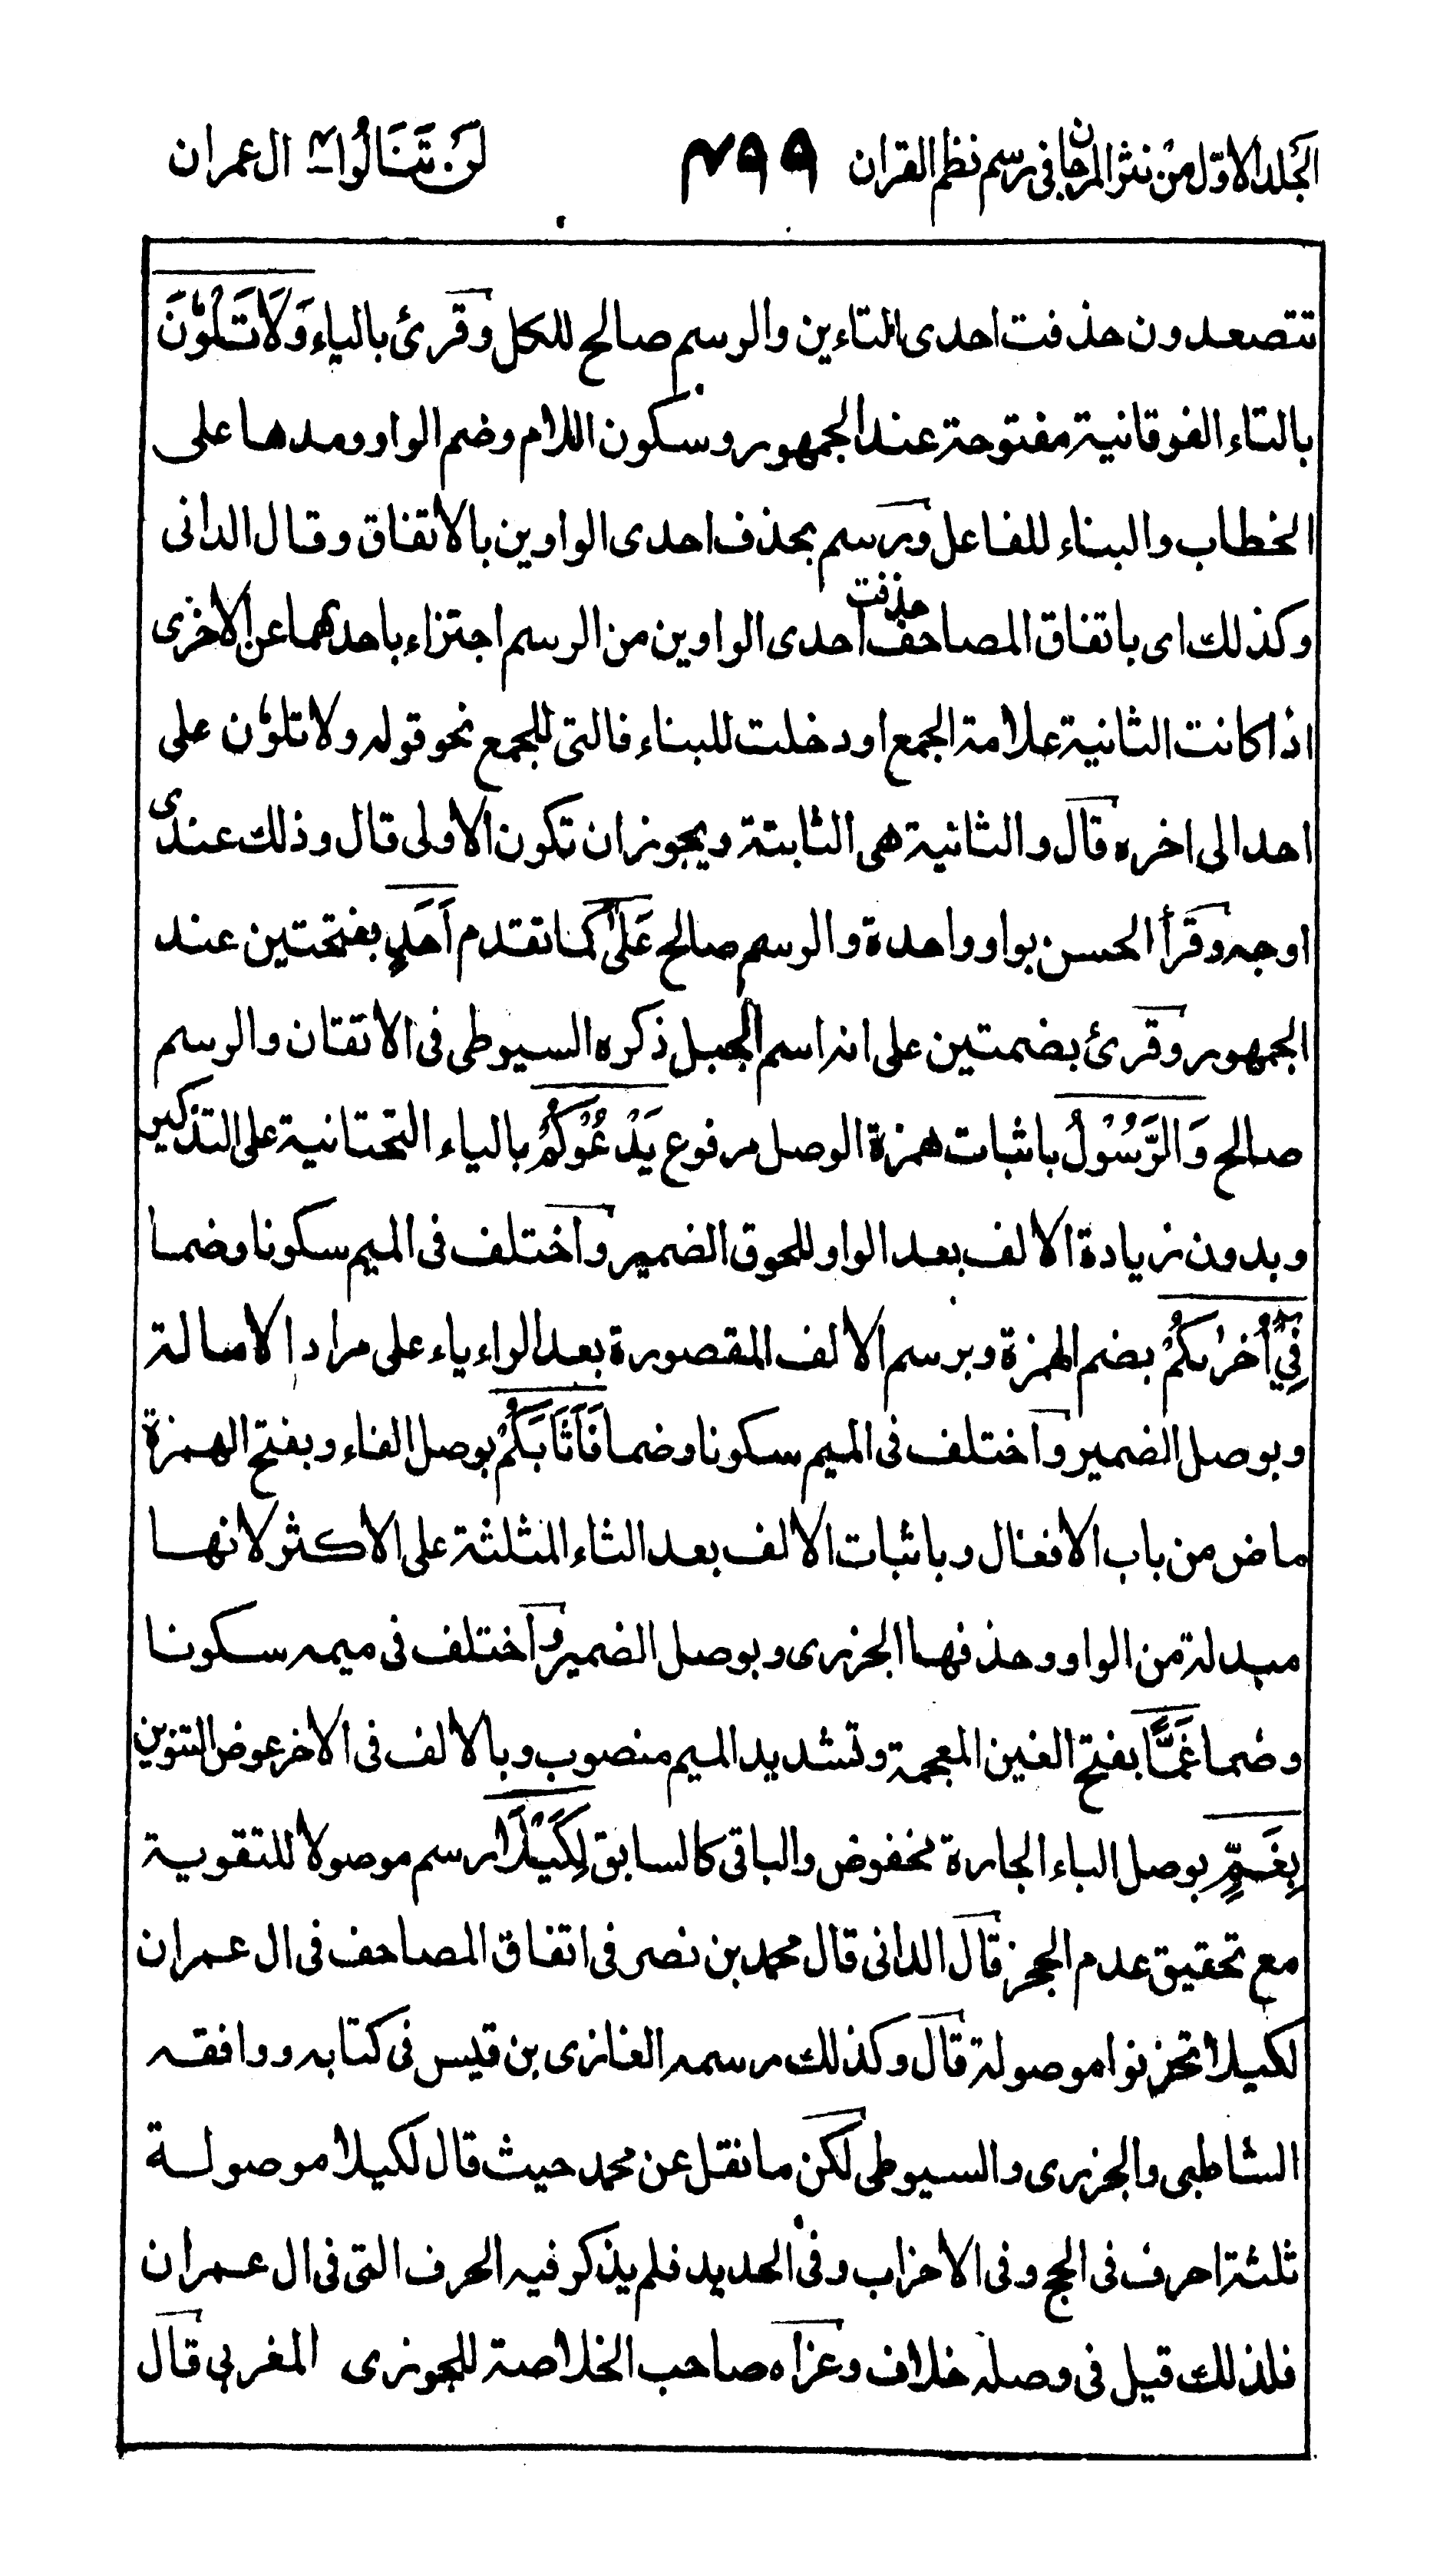 الجلد الاول من نثر المرجان فی رسم نظم القران ۴۹۹ لَنْ تَنَالُوا ۴ ال عمران
تتصعدون حذفت احدی التاءین والرسم صالح للکل وقرئ بالیاء وَلَا تَلْوٗنَ
بالتاء الفوقانیة مفتوحة عند الجمهور وسکون اللام وضم الواو ومدها علی
الخطاب والبناء للفاعل ورسم بحذف احدی الواوین بالاتفاق وقال الدانی
وکذلك ای باتفاق المصاحف حذفت احدی الواوین من الرسم اجتزاء باحدیهما عن الاخری
اذا کانت الثانیة علامة الجمع او دخلت للبناء فالتی للجمع نحو قوله ولا تلوٗن علی
احد الی اخره قال والثانیة هی الثابتة ویجوز ان تکون الاولی قال وذلك عندی
اوجه وقرأ الحسن بواو واحدة والرسم صالح عَلٰی کما تقدم اَحَدٍ بفتحتین عند
الجمهور وقرئ بضمتین علی انه اسم الجبل ذکره السیوطی فی الاتقان والرسم
صالح وَالرَّسُوْلُ باثبات همزة الوصل مرفوع یَدْعُوْکُمْ بالیاء التحتانیة علی التذکیر
وبدون زیادة الالف بعد الواو للحوق الضمیر واختلف فی المیم سکونا وضما
فِیْٓ اُخْرٰىکُمْ بضم الهمزة وبرسم الالف المقصورة بعد الراء یاء علی مراد الامالة
وبوصل الضمیر واختلف فی المیم سکونا وضما فَاَثَابَکُمْ بوصل الفاء وبفتح الهمزة
ماض من باب الافعال وباثبات الالف بعد الثاء المثلثة علی الاکثر لانها
مبدلة من الواو وحذفها الجزری وبوصل الضمیر واختلف فی میمه سکونا
وضما غَمًّا بفتح الغین المعجمة وتشدید المیم منصوب وبالالف فی الاخر عوض التنوین
بِغَمٍّ بوصل الباء الجارة مخفوض والباقی کالسابق لِکَیْلَا رسم موصولا للتقویة
مع تحقیق عدم الحجز قال الدانی قال محمد بن نصر فی اتفاق المصاحف فی ال عمران
لکیلا تحزنوا موصولة قال وکذلك رسمه الغازی بن قیس فی کتابه ووافقه
الشاطبی والجزری والسیوطی لکن ما نقل عن محمد حیث قال لکیلا موصولة
ثلثة احرف فی الحج وفی الاحزاب وفی الحدید فلم یذکر فیه الحرف التی فی ال عمران
فلذلك قیل فی وصله خلاف وعزاه صاحب الخلاصة للجوزی المغربی قال